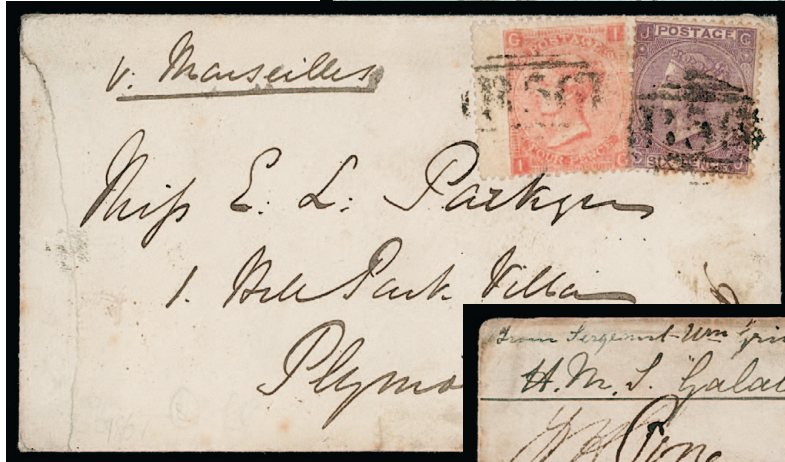 v. Marseilles
G I
POSTAGE
FOUR PENCE
I G
J G
POSTAGE
SIXPENCE
B56
Miss E. L. Parkyn
1. Hill Park Villa
Plymo
From Sergeant Wm Gri
H. M. S. Galat